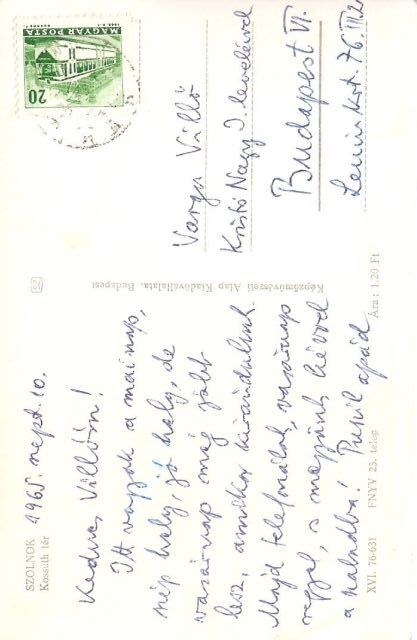 SZOLNOK
Kossuth tér
1965. szept. 10.
Kedves Villőm!
Itt vagyok a mai nap,
szép hely, jó hely, de
vasárnap még jobb
lesz, amikor kirándulunk.
Majd telefonálok, vasárnap
reggel, s megyünk hévvel
a szabadba! Puszil apád
XVI. 76-631 FNYV 23. telep Ára: 1.20 Ft
Képzőművészeti Alap Kiadóvállalata, Budapest
MAGYAR POSTA
20
Varga Villő
Kristó Nagy I. levelével
Budapest VI.
Lenin krt. 76 III/2